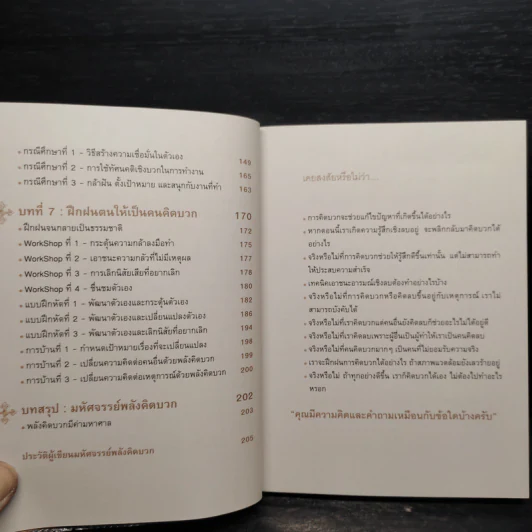 กรณีศึกษาที่ 1 - วิธีสร้างความเชื่อมั่นในตัวเอง 149
กรณีศึกษาที่ 2 - การใช้ทัศนคติเชิงบวกในการทำงาน 165
กรณีศึกษาที่ 3 - กล้าฝัน ตั้งเป้าหมาย และสนุกกับงานที่ทำ 163
บทที่ 7 : ฝึกฝนตนให้เป็นคนคิดบวก 170
ฝึกฝนจนกลายเป็นธรรมชาติ 172
WorkShop ที่ 1 - กระตุ้นความกล้าลงมือทำ 175
WorkShop ที่ 2 - เอาชนะความกลัวที่ไม่มีเหตุผล 177
WorkShop ที่ 3 - การเลิกนิสัยเสียที่อยากเลิก 178
WorkShop ที่ 4 - ชื่นชมตัวเอง 180
แบบฝึกหัดที่ 1 - พัฒนาตัวเองและกระตุ้นตัวเอง
แบบฝึกหัดที่ 2 - พัฒนาตัวเองและเปลี่ยนแปลงตัวเอง
แบบฝึกหัดที่ 3 - พัฒนาตัวเองและเลิกนิสัยที่อยากเลิก
การบ้านที่ 1 - กำหนดเป้าหมายเรื่องที่จะเปลี่ยนแปลง 198
การบ้านที่ 2 - เปลี่ยนความคิดต่อคนอื่นด้วยพลังคิดบวก 199
การบ้านที่ 3 - เปลี่ยนความคิดต่อเหตุการณ์ด้วยพลังคิดบวก 200
บทสรุป : มหัศจรรย์พลังคิดบวก 202
พลังคิดบวกมีค่ามหาศาล 203
ประวัติผู้เขียนมหัศจรรย์พลังคิดบวก 205
เคยสงสัยหรือไม่ว่า...
การคิดบวกจะช่วยแก้ไขปัญหาที่เกิดขึ้นได้อย่างไร
หากตอนนี้เราเกิดความรู้สึกเชิงลบอยู่ จะพลิกกลับมาคิดบวกได้
อย่างไร
จริงหรือไม่ที่การคิดบวกช่วยให้รู้สึกดีขึ้นเท่านั้น แต่ไม่สามารถทำ
ให้ประสบความสำเร็จ
เทคนิคเอาชนะอารมณ์เชิงลบต้องทำอย่างไรบ้าง
จริงหรือไม่ที่การคิดบวกหรือคิดลบขึ้นอยู่กับเหตุการณ์ เราไม่
สามารถบังคับได้
จริงหรือไม่ที่เราคิดบวกแต่คนอื่นยังคิดลบก็ช่วยอะไรไม่ได้อยู่ดี
จริงหรือไม่ที่เราคิดลบเพราะผู้อื่นเป็นผู้ทำให้เราเป็นคนคิดลบ
จริงหรือไม่ที่คนคิดบวกมากๆ เป็นคนที่ไม่ยอมรับความจริง
เราจะฝึกฝนการคิดบวกได้อย่างไร ถ้าสภาพแวดล้อมยังเลวร้ายอยู่
จริงหรือไม่ ถ้าทุกอย่างดีขึ้น เราก็คิดบวกได้เอง ไม่ต้องไปทำอะไร
หรอก
"คุณมีความคิดและคำถามเหมือนกับข้อใดบ้างครับ"